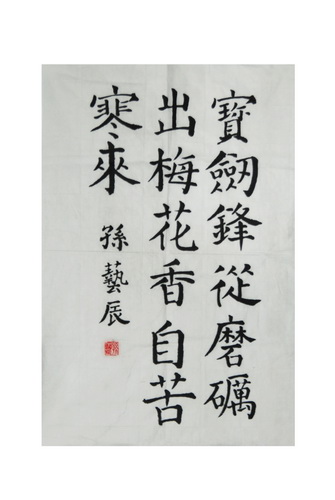 寶劒鋒從磨礪
出梅花香自苦
寒來
孫藝辰